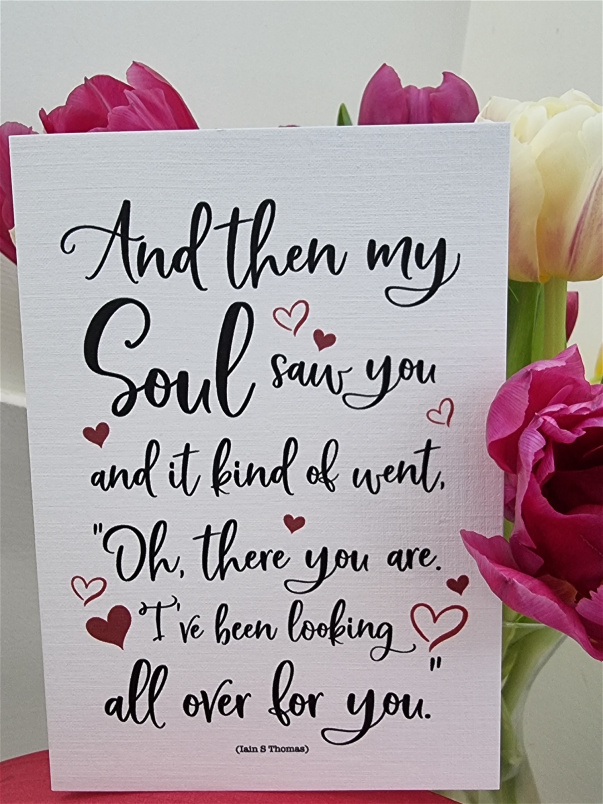 And then my
Soul saw you
and it kind of went,
"Oh, there you are.
I've been looking
all over for you."
(Iain S Thomas)